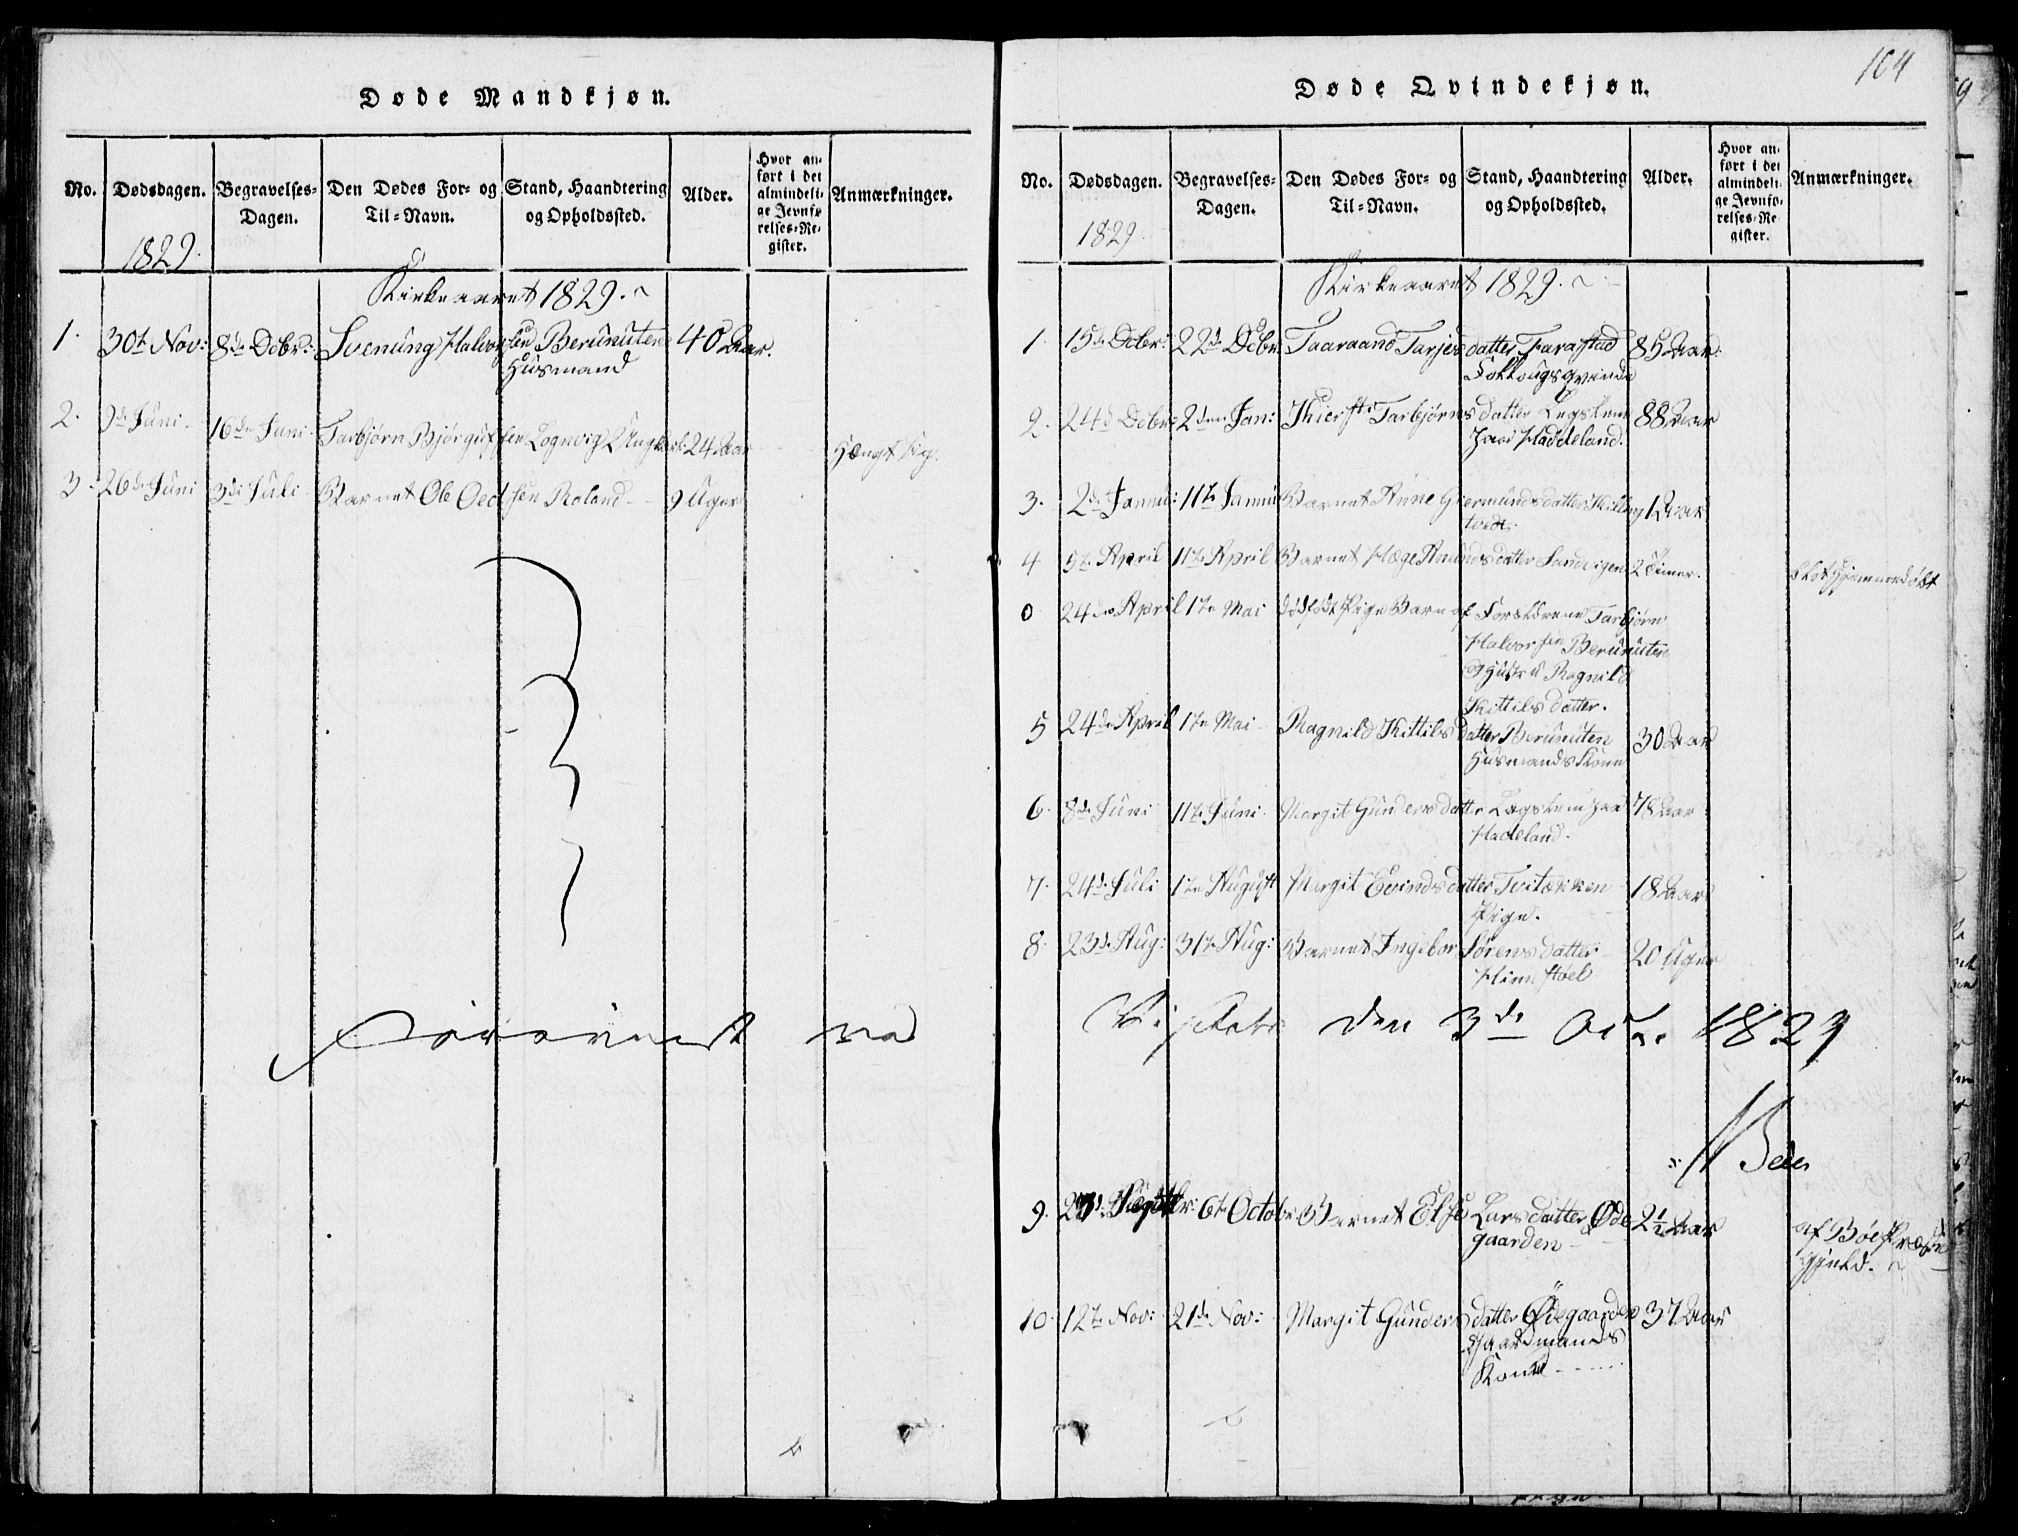 Døde Mandkjøn.
No. Dødsdagen. Begravelses-Dagen. Den Dødes For- og Til-Navn. Stand, Haandtering og Opholdssted. Alder. Hvor anført i det almindelige Jevnførelses-Register. Anmærkninger.
1829.
Kirkeaaret 1829.
1. 30te Nov: 8de Debr: Svenung Halvorsen Berunuten 40 Aar.
Husmand
2. 9de Juni 16de Juni Tarbjørn Bjørgufsen Lognvig Ungkarl 24 Aar
Hængt sig.
3. 26de Juni 3die Juli Barnet Ole Oedsen Roland 9 Uger
104
Døde Qvindekjøn.
No. Dødsdagen. Begravelses-Dagen. Den Dødes For- og Til-Navn. Stand, Haandtering og Opholdssted. Alder. Hvor anført i det almindelige Jevnførelses-Register. Anmærkninger.
1829.
Kirkeaaret 1829.
1. 15de Debr: 22de Debr: Taaraand Tarjesdatter Farastad 85 Aar.
2. 24de Debr: 2den Jan: Tarbjørnsdatter Lægslem 88 Aar
paa Haddeland.
3. 2de Januar: 11te Januar Barnet Anne Giermundsdatter 1 Aar
4 5te April 11te April Barnet Hæge Amundsdatter Sandvigen 2 Timer.
hjemmedøbt
0 24de April 1te Mai dødfødt Pige Barn af Forældrene Tarbjørn
Halvorsen Berunuten
og Hustru Ragnild
Kittilsdatter.
5 24de April 1te Mai Ragnild Kittilsdatter Berunuten 30 Aar
Husmands Kone
6. 8de Juni 11te Juni Margit Gundersdatter Lægslem paa 78 Aar
Hadeland.
7. 24de Juli 1te August Margit Evindsdatter Tvitækken 18 Aar
Pige.
8. 23de Aug: 31te Aug: Barnet Ingebor Sørensdatter 20 Uger
Himstoel
den 3de 1829
9. 6te Octobr: Barnet Else Larsdatter Øde 2½ Aar
gaarden
af Bøe Præste
Gjeld.
10. 12te Nov: 21de Nov: Margit Gundersdatter Ødegaarden 37 Aar
Gaardmands
Kone